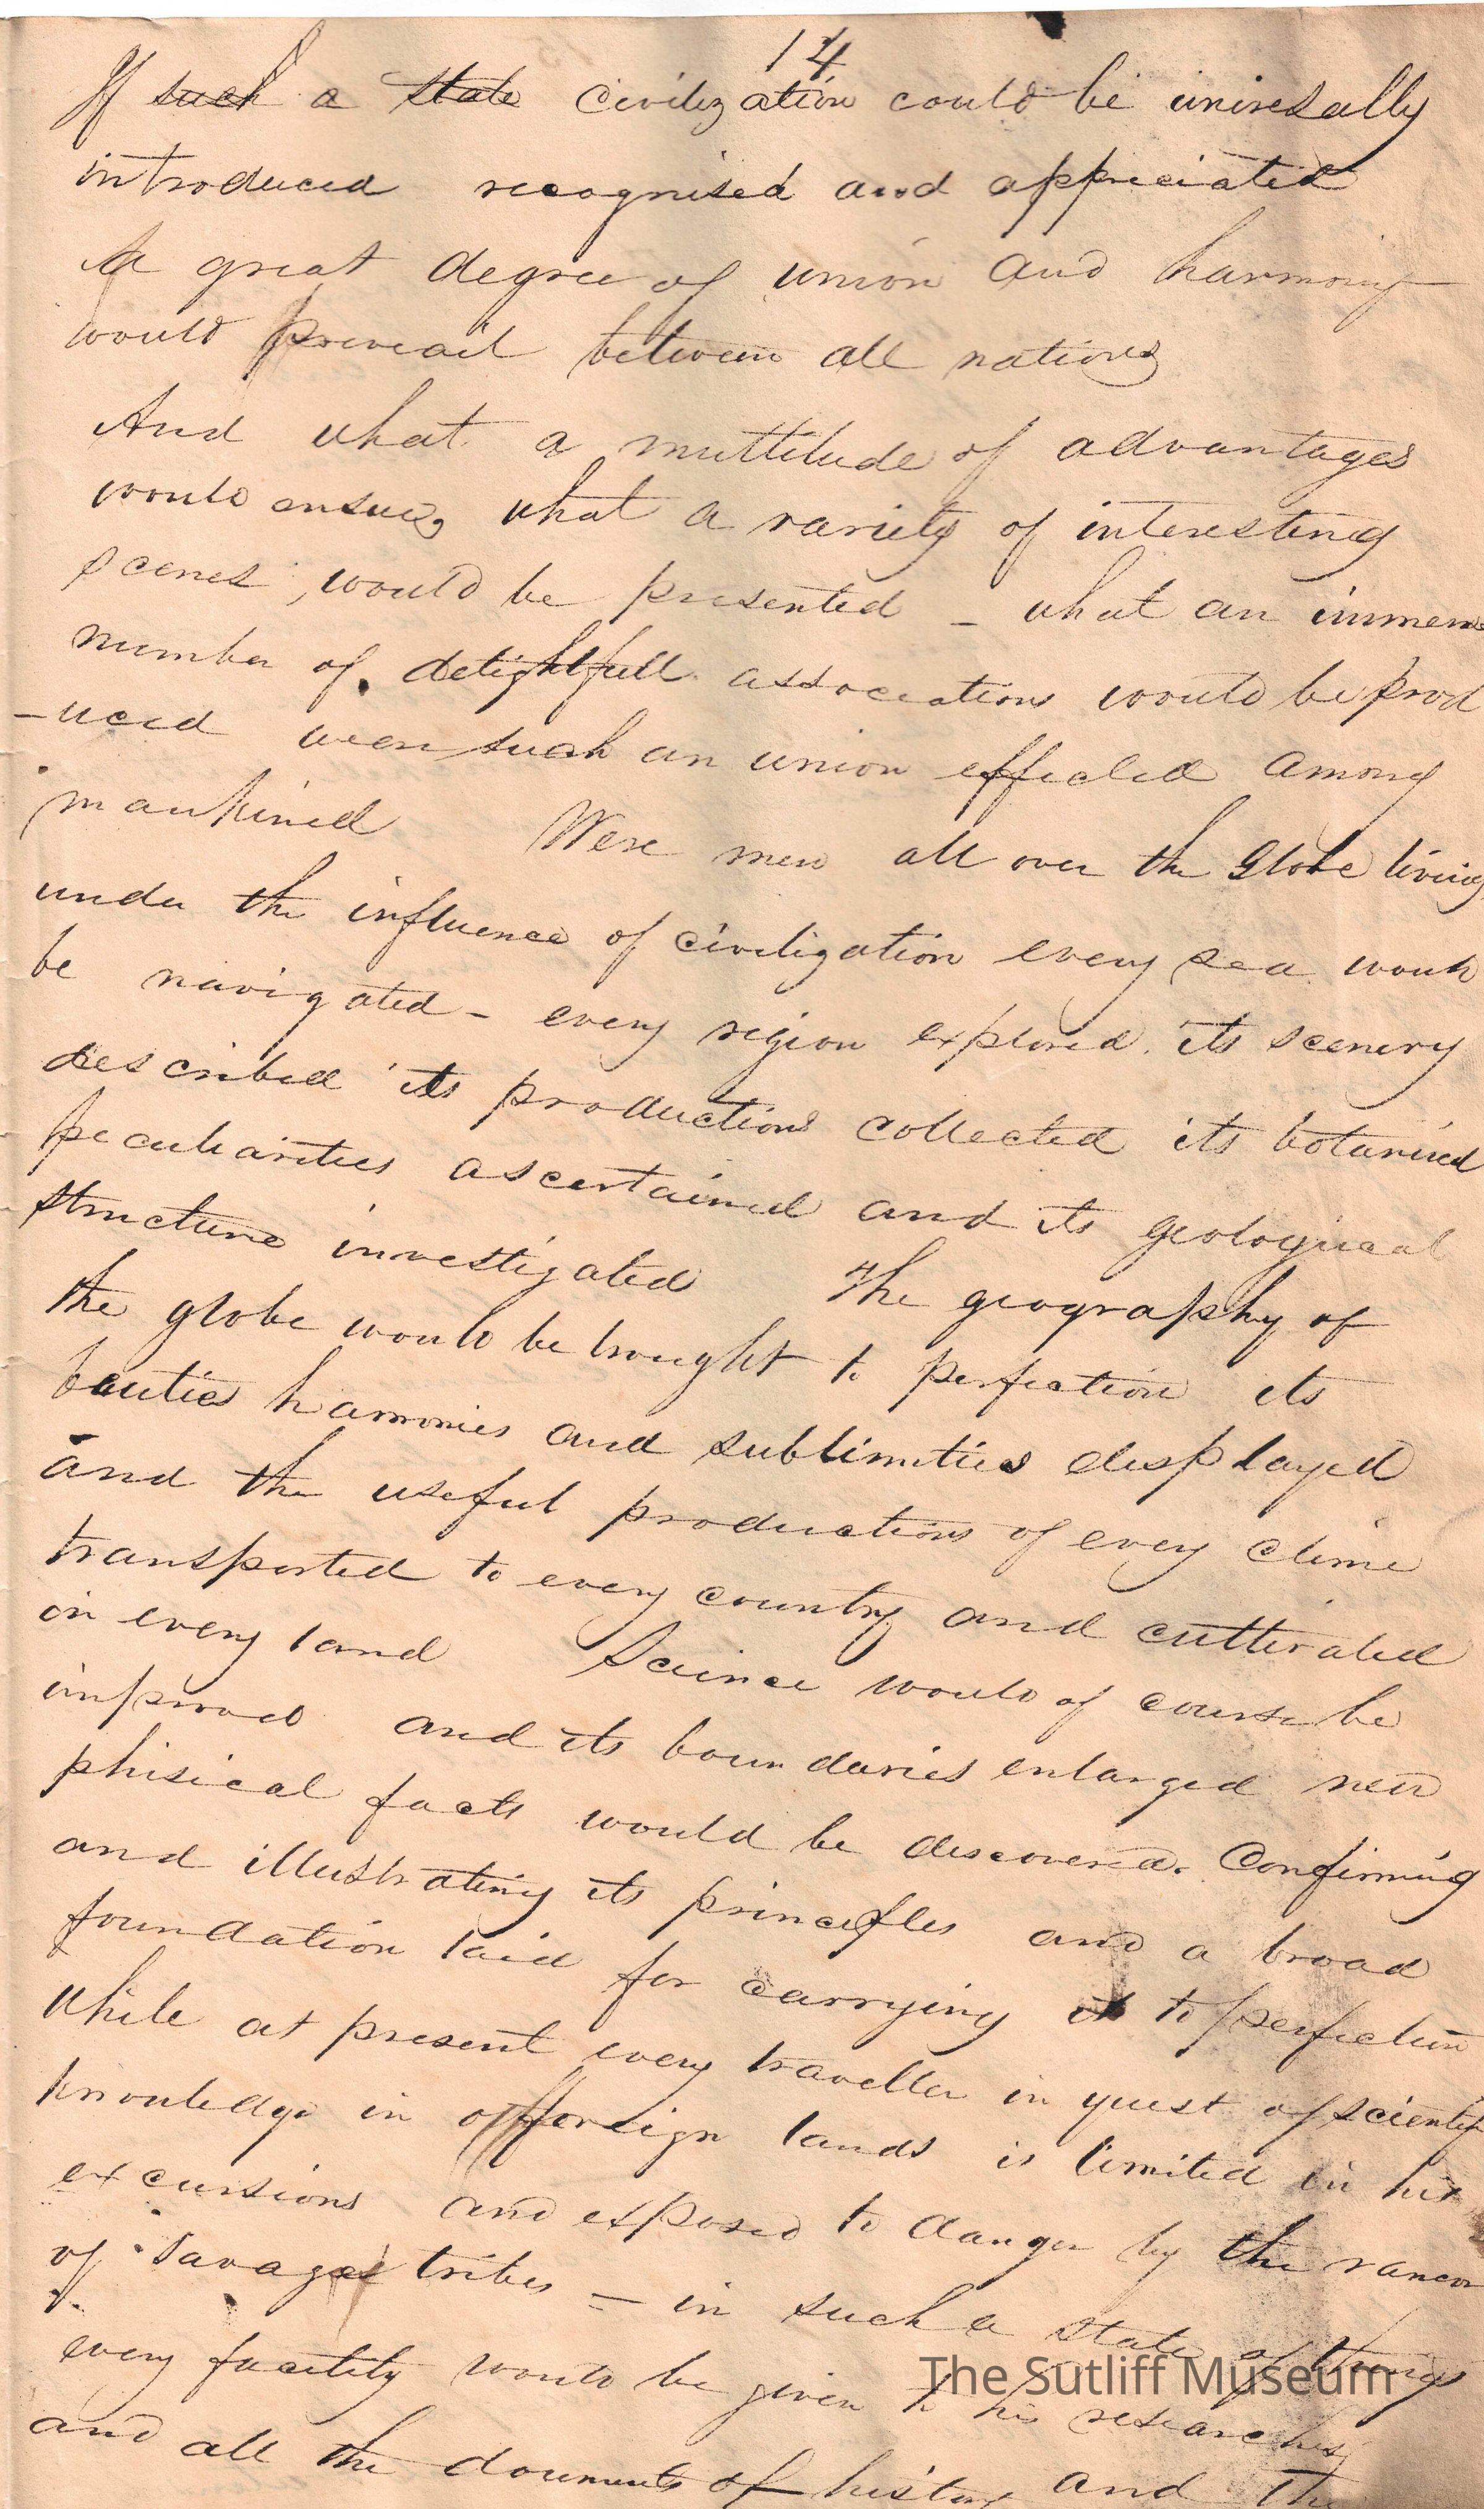 14
If such a state civilization could be univesally
introduced recognised and appreciated
A great degree of union and harmony
would preveail between all nations
And what a multitude of advantages
would ensue, what a variety of interesting
scenes, would be presented - what an immens
number of delightfull associations would be prod
-uced were such an union effected among
mankined Were men all over the Globe living
under the influence of civilization every sea would
be navigated - every region explored. its scenery
described its productions collected its botanical
peculiarities ascertained and its geological
structure investigated The geography of
the globe would be brought to perfection its
beauties harmonies and sublimities displayed
and the useful productions of every clime
transported to every country and cultivated
in every land Science would of course be
improved and its boundaries enlarged new
phisical facts would be discovered. Confirming
and illustrating its principles and a broad
foundation laid for carrying it to perfection
While at present every traveller in quest of scientif
knowledge in foreign lands is limited in his
excursions and exposed to danger by the rancor
of savage tribes - in such a state of things
every facility would be given to his researches
and all the documents of history and the
The Sutliff Museum